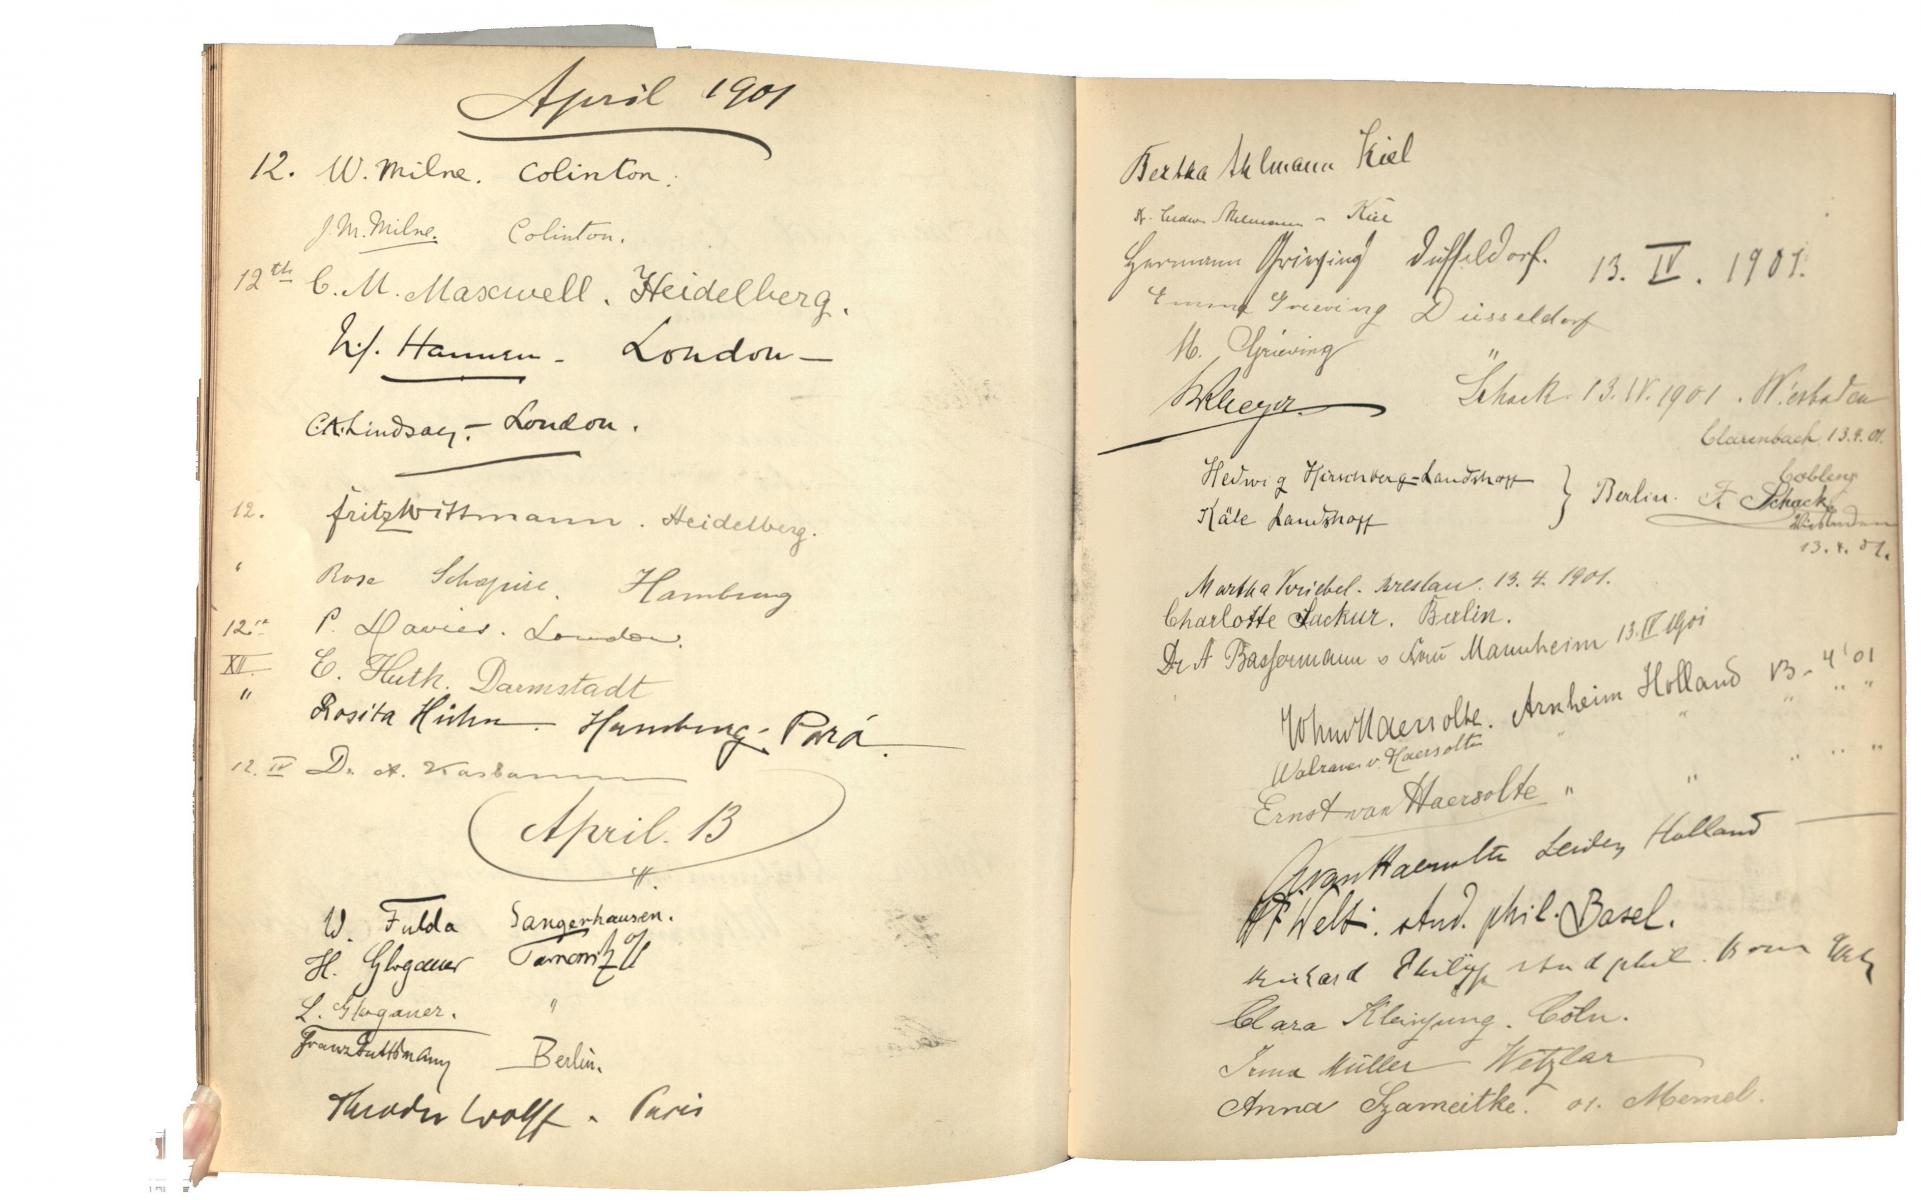 April 1901
12. W. Milne. Colinton.
J. M. Milne. Colinton.
12th C. M. Maxwell. Heidelberg.
Hannen - London -
C.A. Lindsay. - London.
12. Fritz Wittmann. Heidelberg.
" Rosa Schapire. Hamburg
12 P. Davies. London.
XII E. Huth. Darmstadt
" Rosita Hühn. Hamburg - Pará
12. IV Dr. A.
April. 13
W. Fulda Sangerhausen.
H. Glogauer Tarnowitz O/S
L. Glogauer. "
Franz Guttmann Berlin.
Theodor Wolff. Paris
Bertha Ahlmann Kiel
Dr. Ludw. Ahlmann - Kiel
Hermann Grieving Düsseldorf. 13. IV. 1901.
Emma Grieving Düsseldorf
M. Grieving "
Schack. 13. IV. 1901. Wiesbaden
Clarenbach 13.4.01.
Coblenz
Hedwig Hirschberg-Landshoff
Käte Landshoff } Berlin. F. Schack
Wiesbaden
13. 4. 01.
Martha Kriebel. Breslau. 13. 4. 1901.
Charlotte Sackur. Berlin.
Dr A Bassermann u Frau Mannheim 13. IV 1901
Haersolte. Arnheim Holland 13-4'01
Walraven v. Haersolte " " " " "
Ernst van Haersolte " " " " "
van Haersolte Leiden Holland
Welti. stud. phil. Basel.
Richard Philipp stud phil. Bonn
Clara Kleinjung. Cöln.
Irma Müller Wetzlar
Anna Szameitke. 01. Memel.